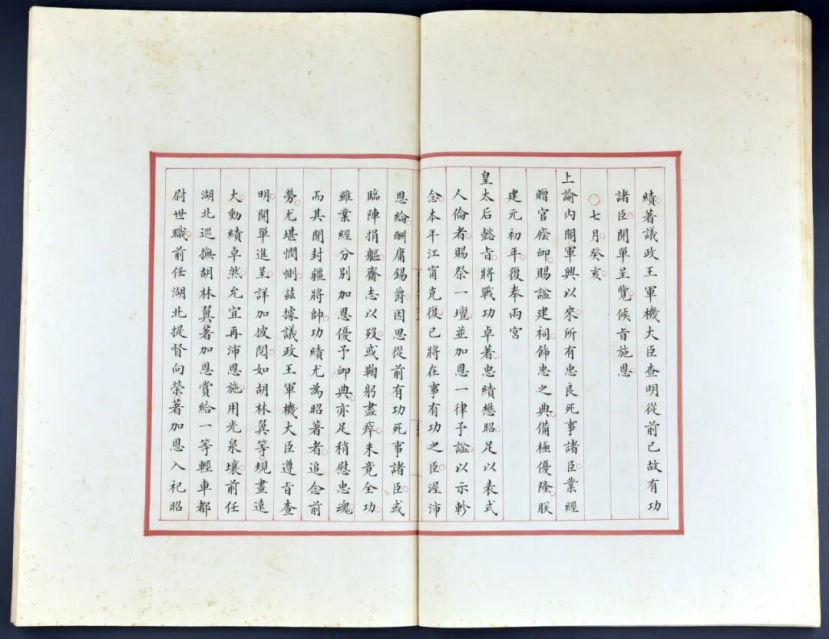 績著議政王軍機大臣查明從前已故有功
諸臣開單呈覽候旨施恩
○七月癸亥
上諭內閣軍興以來所有忠良死事諸臣業經
贈官廕卹賜諡建祠飾忠之典備極優隆朕
建元初年復奉兩宮
皇太后懿旨將戰功卓著忠績懋昭足以表式
人倫者賜祭一壇並加恩一律予諡以示軫
念本年江甯克復已將在事有功之臣渥沛
恩綸酬庸錫爵因思從前有功死事諸臣或
臨陣捐軀齎志以歿或鞠躬盡瘁未竟全功
雖業經分別加恩優予卹典亦足稍慰忠魂
而其開封疆將帥功績尤為昭著者追念前
勞尤堪憫惻茲據議政王軍機大臣遵旨查
明開單進呈詳加披閱如胡林翼等規畫遠
大勳績卓然允宜再沛恩施用光泉壤前任
湖北巡撫胡林翼著加恩賞給一等輕車都
尉世職前任湖北提督向榮著加恩入祀昭